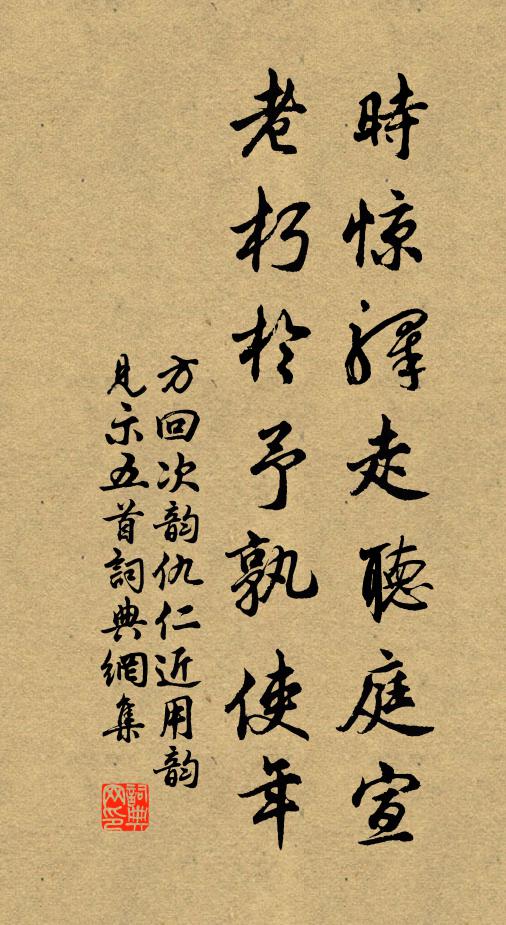 時惊驛走聽庭宣
老朽於予孰使年
方回次韵仇仁近用韵
見示五首詞典網集
詞典网印